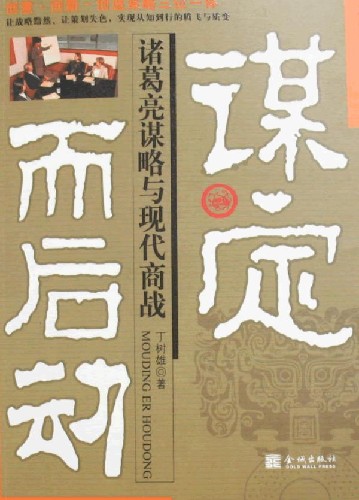 让战略黯然、让策划失色，实现从知到行的腾飞与质变
谋定
而后动
诸葛亮谋略与现代商战
丁树雄◎著
MOUDING ER HOUDONG
金城出版社
GOLD WALL PRESS